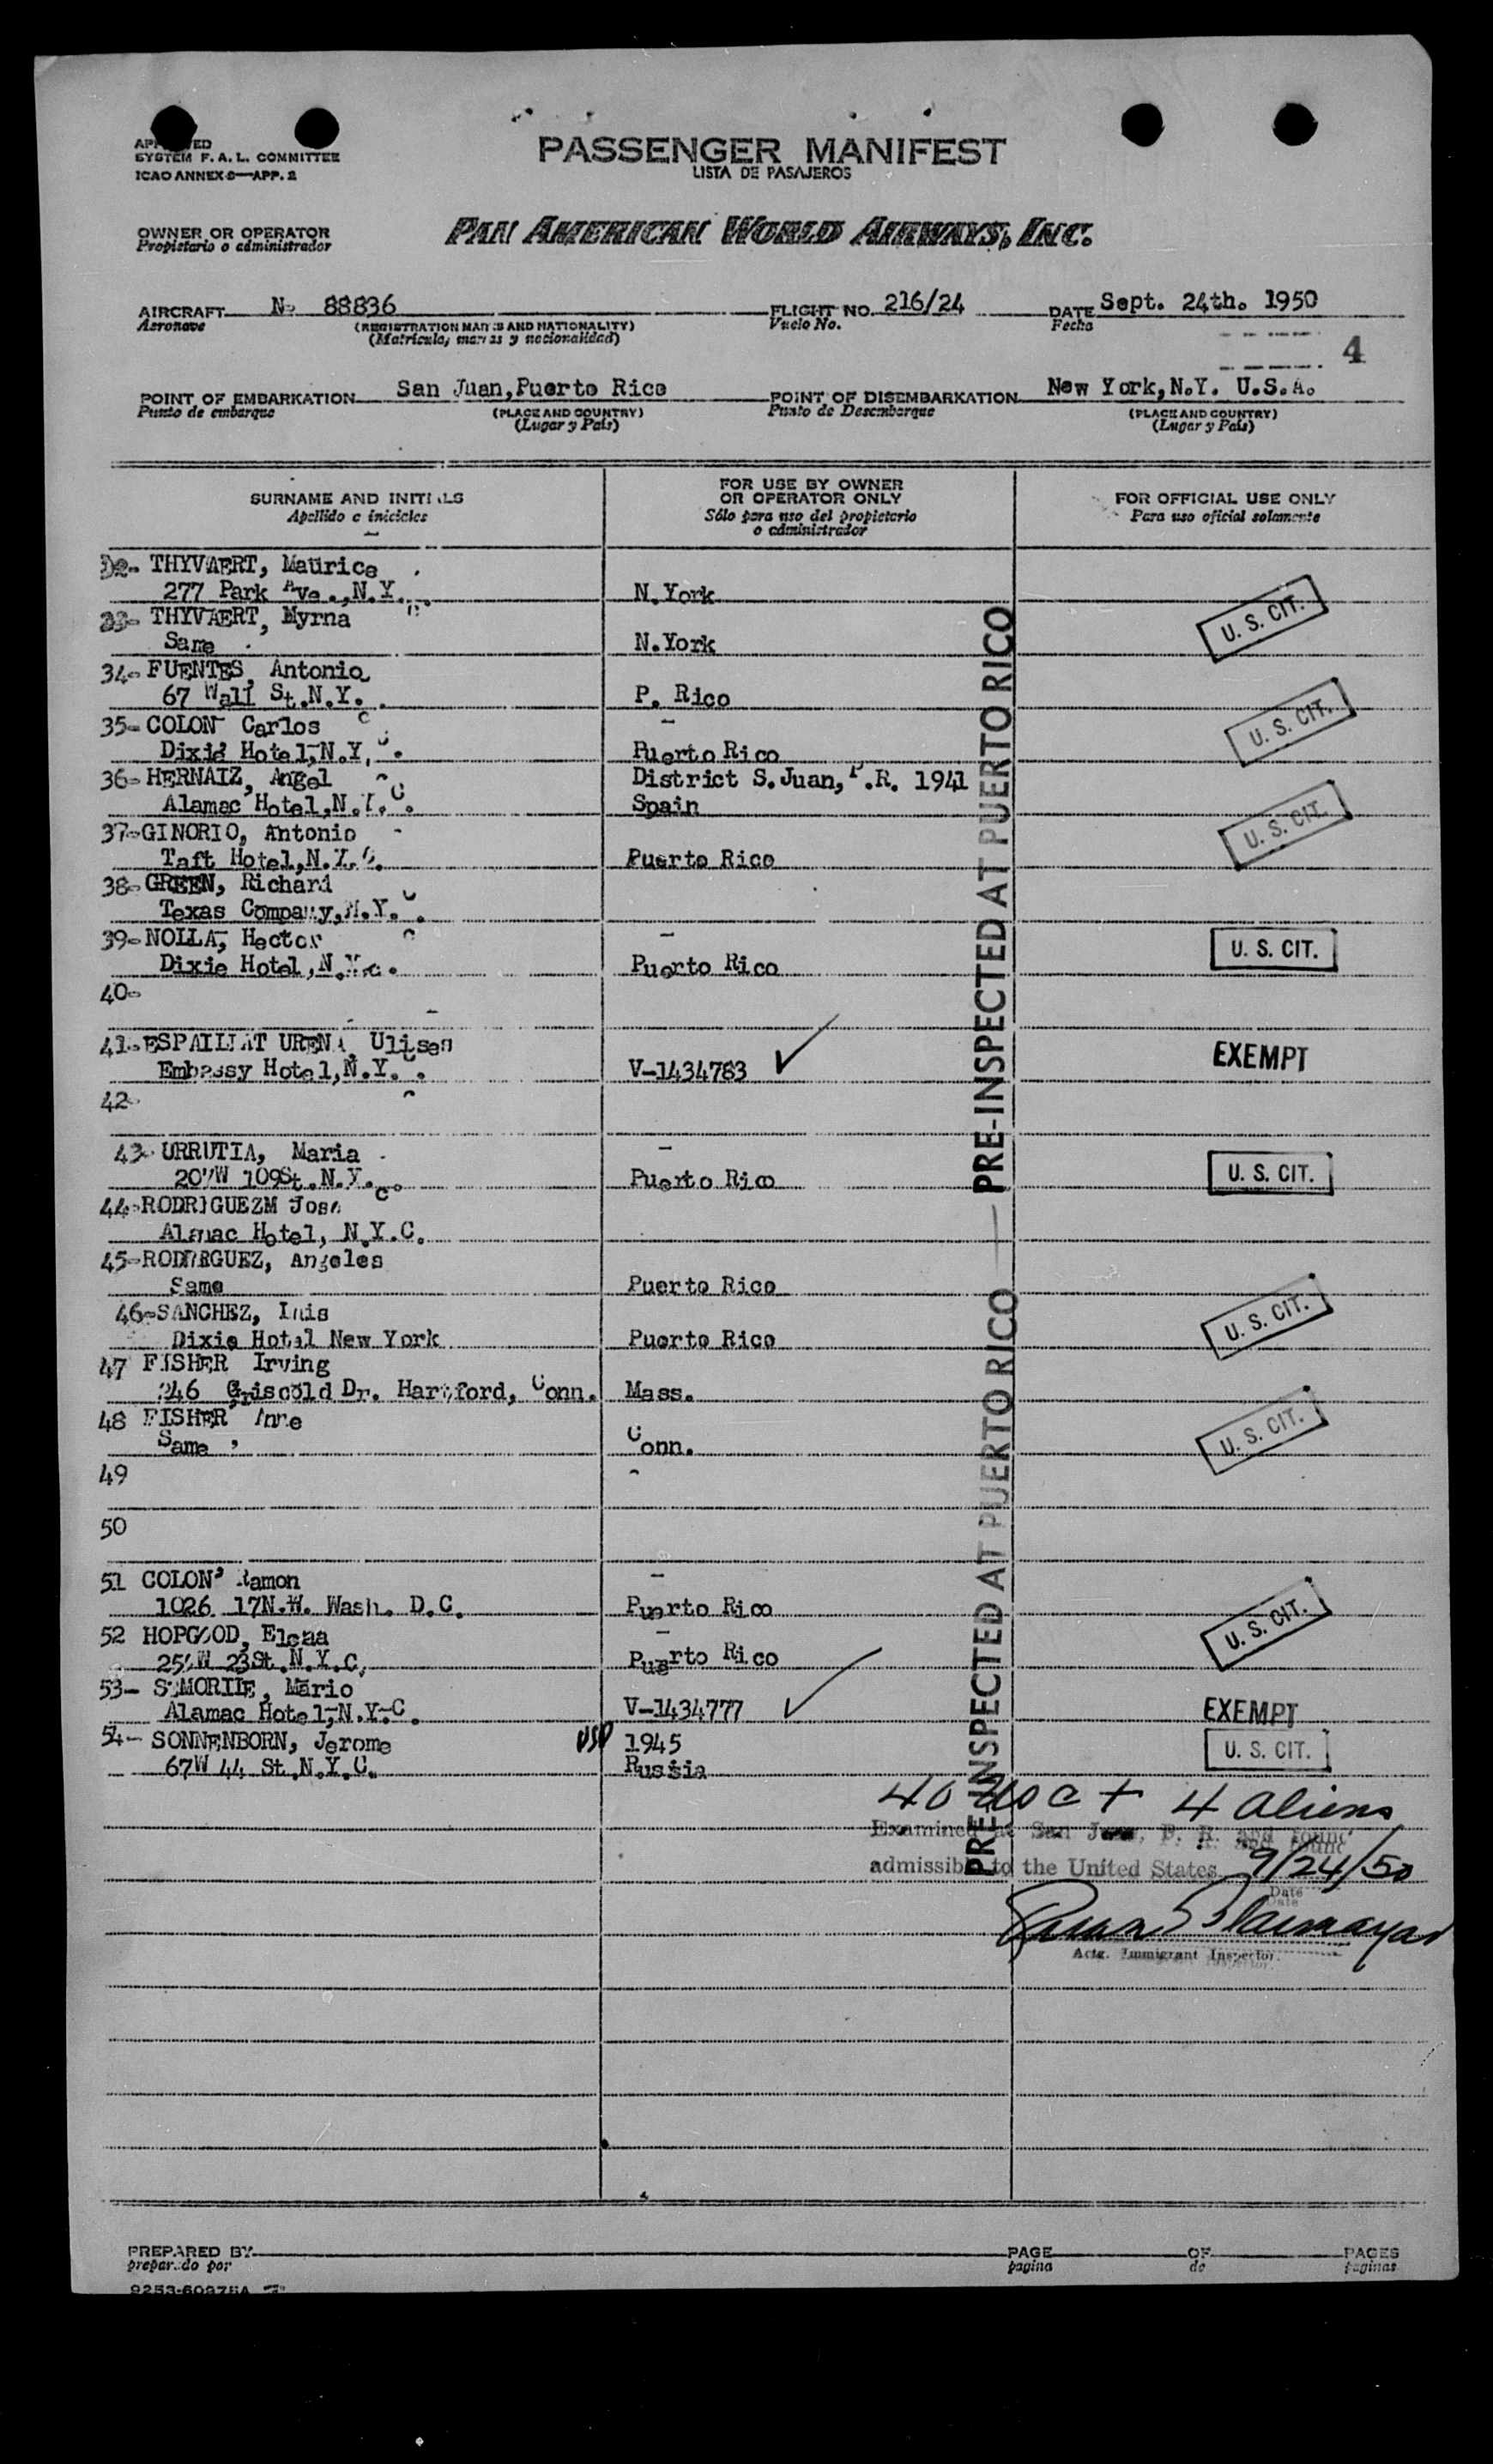 APPROVED
SYSTEM F. A. L. COMMITTEE
ICAO ANNEX 9—APP. 2
PASSENGER MANIFEST
LISTA DE PASAJEROS
OWNER OR OPERATOR
Propietario o administrador
PAN AMERICAN WORLD AIRWAYS, INC.
AIRCRAFT N- 88836 FLIGHT NO. 216/24 DATE Sept. 24th. 1950
Aeronave (REGISTRATION MARKS AND NATIONALITY) Vuelo No. Fecha
(Matricula, marcas y nacionalidad)
4
POINT OF EMBARKATION San Juan,Puerto Rico POINT OF DISEMBARKATION New York,N.Y. U.S.A.
Punto de embarque (PLACE AND COUNTRY) Punto de Desembarque (PLACE AND COUNTRY)
(Lugar y País) (Lugar y País)
SURNAME AND INITIALS FOR USE BY OWNER OR OPERATOR ONLY FOR OFFICIAL USE ONLY
Apellido e iniciales Sólo para uso del propietario o administrador Para uso oficial solamente
32- THYVAERT, Maurice
277 Park Ave.,N.Y. N.York
33- THYVAERT, Myrna U. S. CIT.
Same N.York
34- FUENTES, Antonio
67 Wall St.N.Y. P. Rico
35- COLON Carlos U. S. CIT.
Dixie Hotel,N.Y.C. Puerto Rico
36- HERNAIZ, Angel District S.Juan, P.R. 1941
Alamac Hotel,N.Y.C. Spain
37-GINORIO, Antonio U. S. CIT.
Taft Hotel,N.Y.C. Puerto Rico
38- GREEN, Richard
Texas Company,N.Y.C.
39- NOLLA, Hector U. S. CIT.
Dixie Hotel,N.Y.C. Puerto Rico
40-
41- ESPAILLAT URENA, Ulises EXEMPT
Embassy Hotel,N.Y.C. V-1434783
42-
43- URRUTIA, Maria U. S. CIT.
109St.N.Y.C. Puerto Rico
44-RODRIGUEZM Jose
Alamac Hotel, N.Y.C.
45-RODRIGUEZ, Angeles
Same Puerto Rico
46-SANCHEZ, Luis U. S. CIT.
Dixie Hotel New York Puerto Rico
47 FISHER Irving
Griscold Dr. Hartford, Conn. Mass.
48 FISHER Anne U. S. CIT.
Same Conn.
49
50
51 COLON Ramon
1026 17N.W. Wash. D.C. Puerto Rico
52 HOPGOOD, U. S. CIT.
23St.N.Y.C. Puerto Rico
53- Mario
Alamac Hotel,N.Y.C. V-1434777 EXEMPT
54- SONNENBORN, Jerome 1945 U. S. CIT.
67W 44 St.N.Y.C. Russia
PRE-INSPECTED AT PUERTO RICO
PRE-INSPECTED AT PUERTO RICO
4 aliens
Examined at San Juan, P. R. and found
admissible to the United States 9/24/50
Date
Actg. Immigrant Inspector.
PREPARED BY PAGE OF PAGES
preparado por pagina de paginas